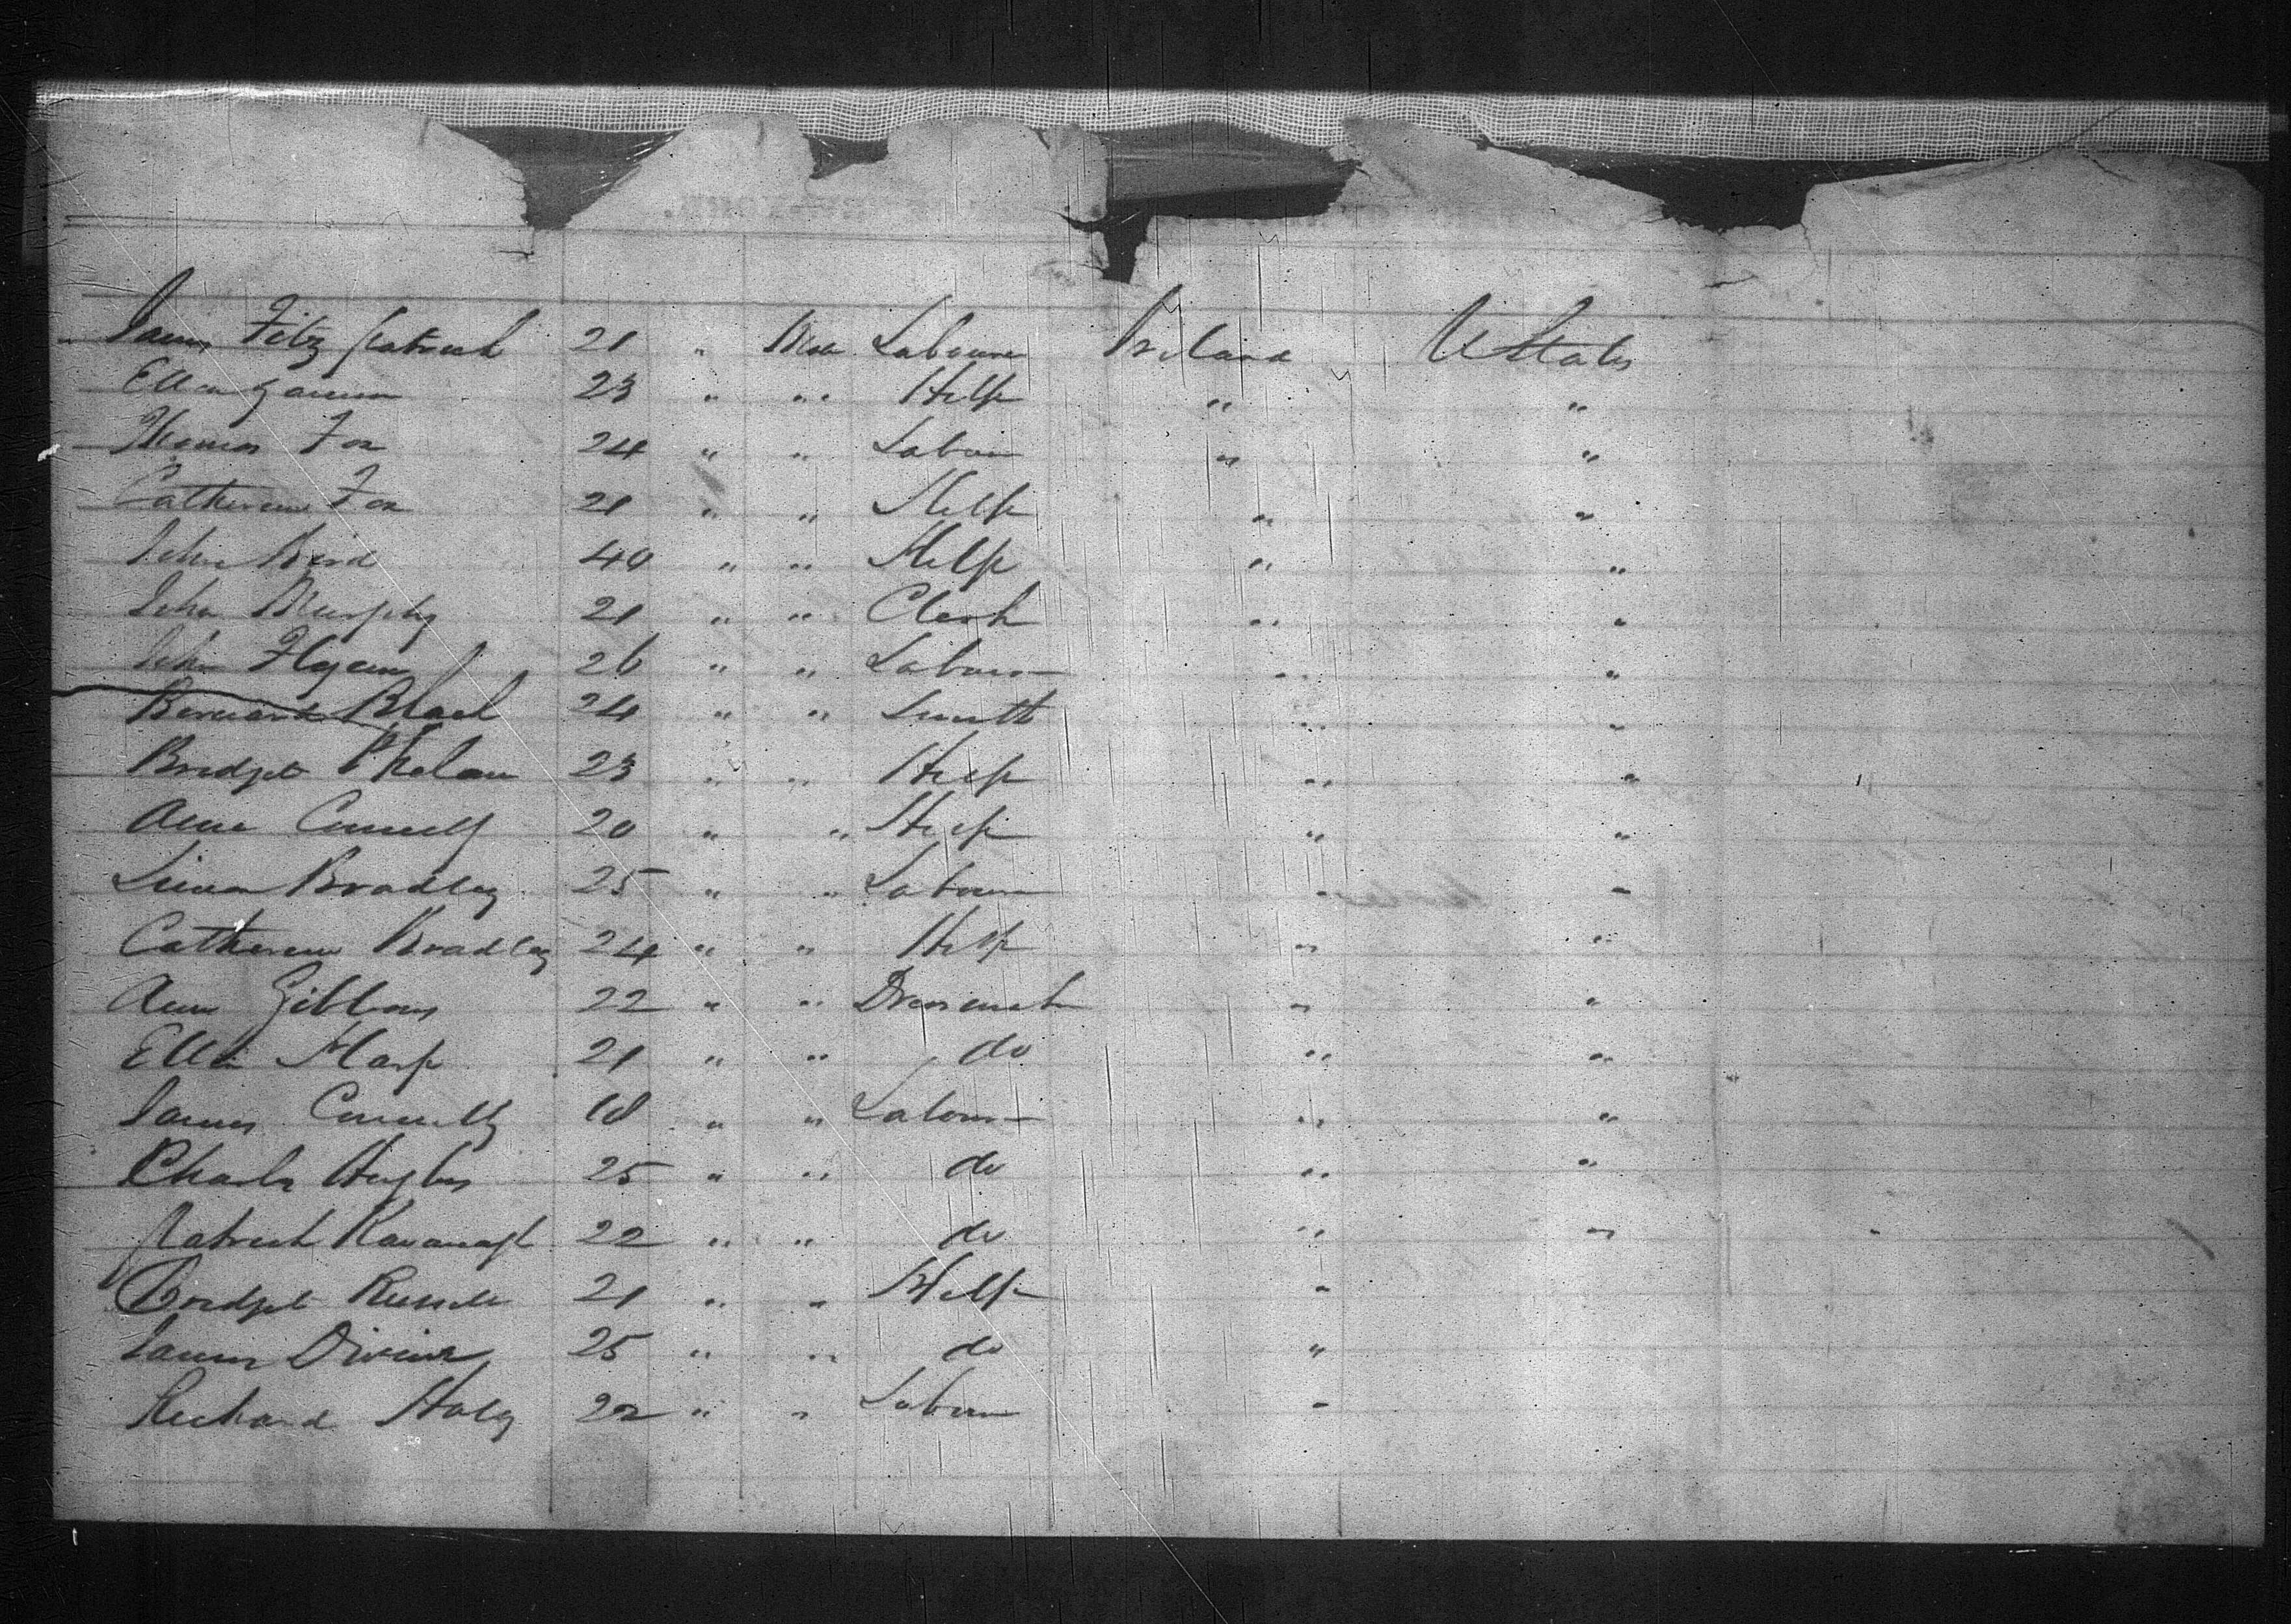 James Fitz patrick 21 " Male Labourer Ireland U States
Ellen 23 " " Help " "
Thomas Fox 24 " " Labour " "
Catherine Fox 21 " " Help " "
John 40 " " Help " "
John Murphy 21 " " Clerk " "
John 26 " " Labourer " "
Bernard Black 24 " " Smith " "
Bridget Phelan 23 " " Help " "
Anne Connelly 20 " " Help " "
Bradley 25 " " Labourer " "
Catherine Bradley 24 " " Help " "
Ann Gibbons 22 " " Dressmak " "
Ellen 21 " " do " "
James Connelly 18 " " Labour " "
Charles Hughes 25 " " do " "
Patrick Kavanagh 22 " " do " "
Bridget Russell 21 " " Help "
James Divine 25 " " do "
Richard 22 " " Labour "